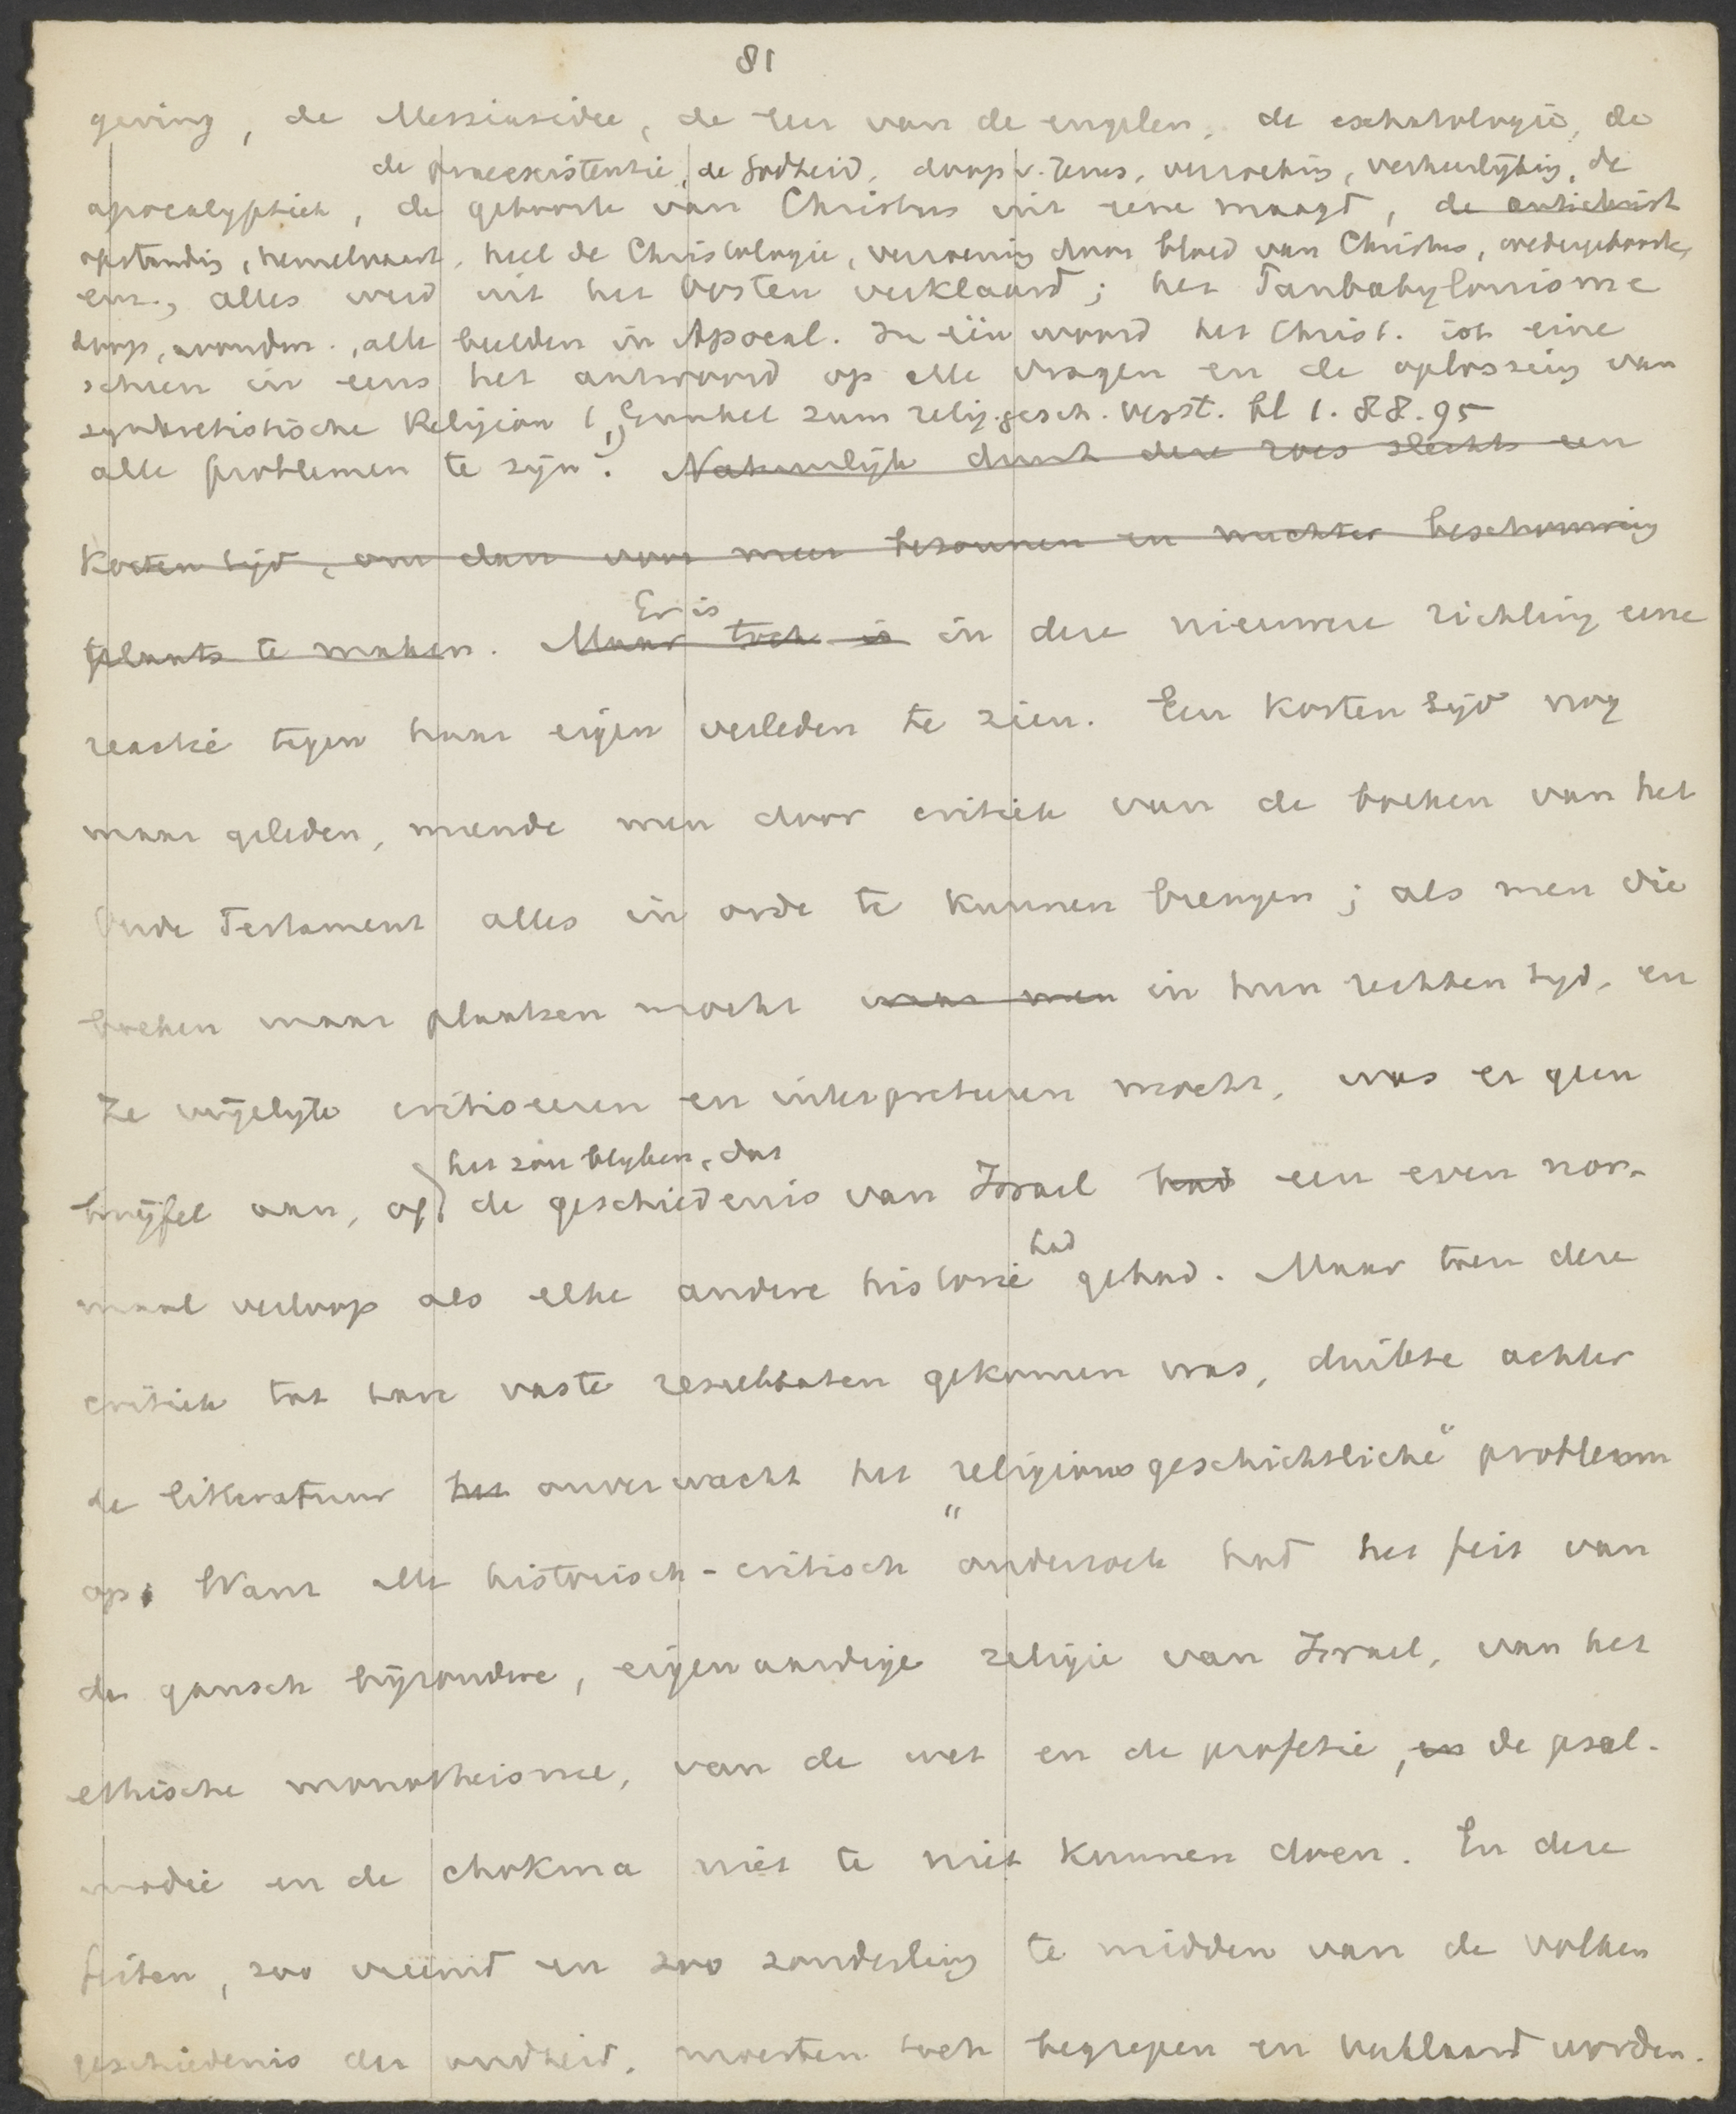 81
geving, de Messiasidee, de leer van de engelen, de eschatologie, de
de praeexistentie, de Godheid, doop v. Jezus, verzoeking, verheerlijking, de
apocalyptiek, de geboorte van Christus uit eene maagd, de antichrist
opstanding, hemelvaart, heel de Christologie, verzoening door bloed van Christus, wedergeboorte,
enz., alles werd uit het Oosten verklaard; het Panbabylonisme
doop, avondm., alle beelden in Apocal. In één woord het Christ. ist eine
scheen in eens het antwoord op alle vragen en de oplossing van
synkretistische Religion (Gunkel zum relig.gesch. Verst. bl 1. 88. 95
alle problemen te zijn. Natuurlijk duurt deze roes slechts een
korten tijd, om dan voor meer bezonnen en nuchter beschouwing
plaats te maken. Maar toch is in deze nieuwere richting eene
Er is
reactie tegen haar eigen verleden te zien. Een korten tijd nog
maar geleden, meende men door critiek van de boeken van het
Oude Testament alles in orde te kunnen brengen; als men die
boeken maar plaatsen mocht waar men in hun rechten tijd, en
ze vrijelijk critiseeren en interpreteeren mocht, was er geen
het zou blijken, dat
twijfel aan, of de geschiedenis van Israel had een even nor-
had
maal verloop als elke andere historie gehad. Maar toen deze
critiek tot hare vaste resultaten gekomen was, duikte achter
de litteratuur het onverwacht het "religionsgeschichtliche" probleem
op. Want alle historisch-critisch onderzoek had het feit van
de gansch bijzondere, eigenaardige religie van Israel, van het
ethische monotheisme, van de wet en de profetie, en de psal-
modie en de chokma niet te niet kunnen doen. En deze
feiten, zoo vreemd en zoo zonderling te midden van de volken
geschiedenis der oudheid, moesten toch begrepen en verklaard worden.